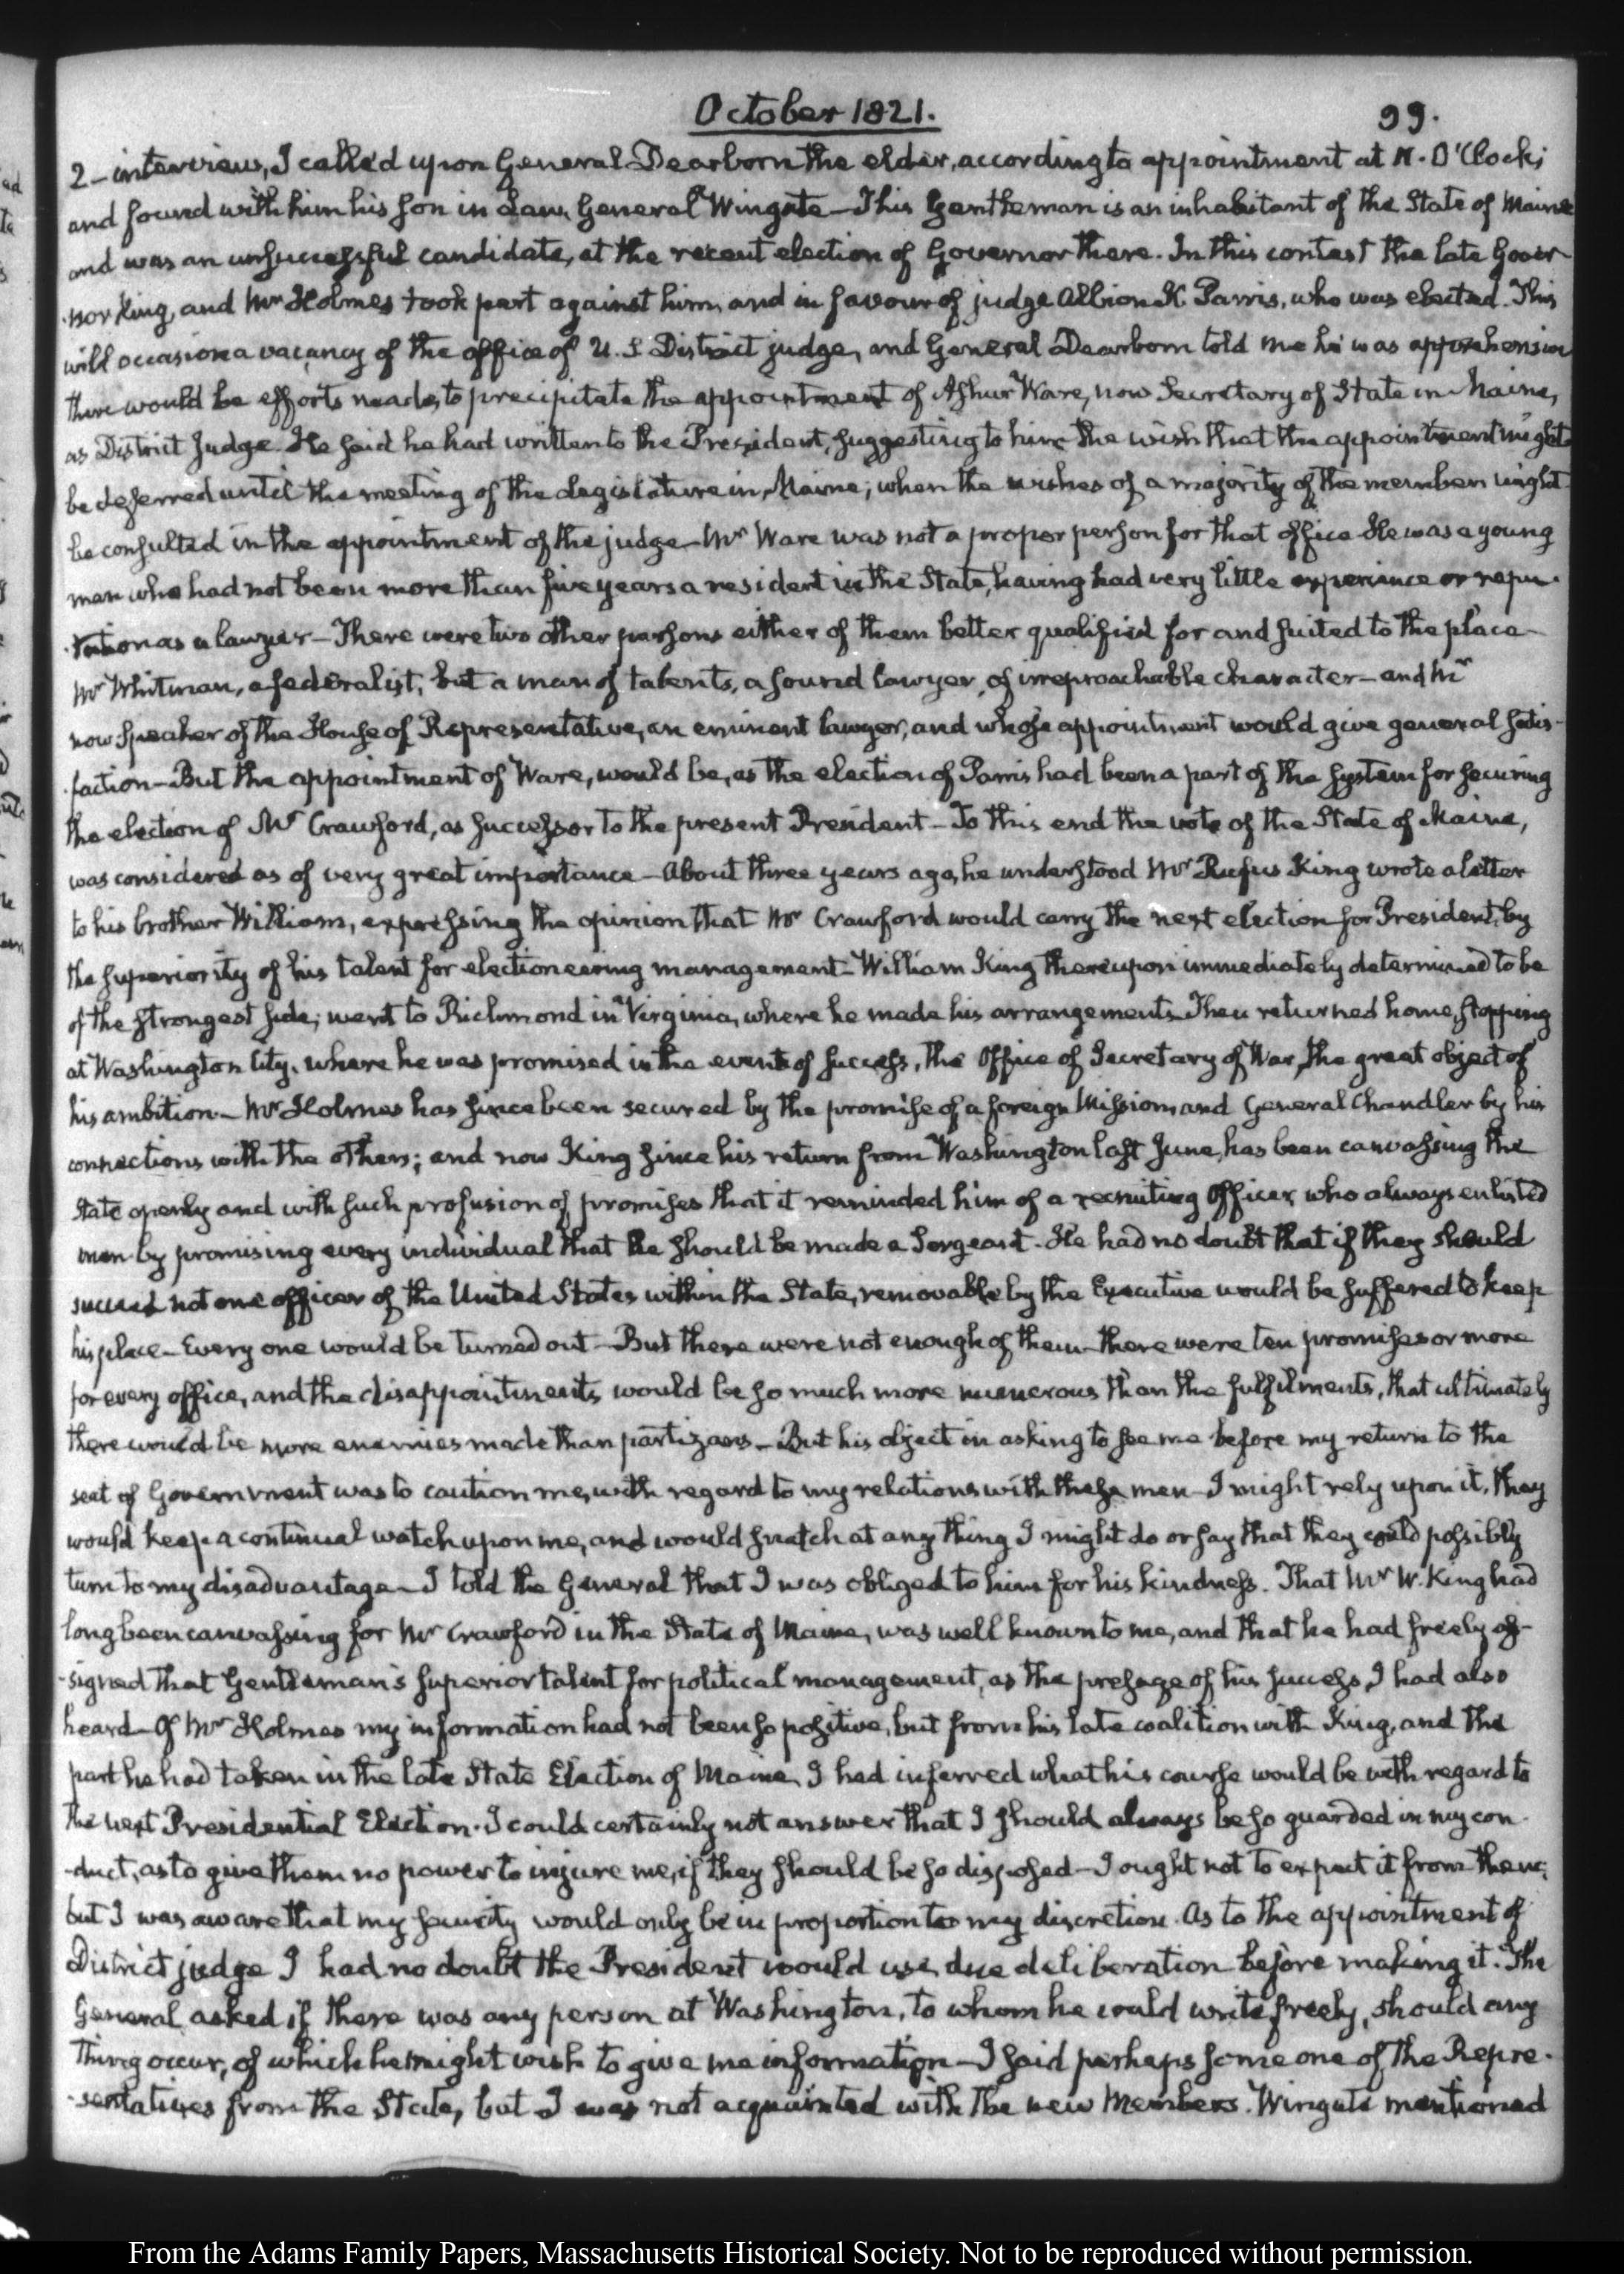 October 1821.
99.
2 - interview, I called upon General Dearborn the elder, according to appointment at O'Clock;
and found with him his son in law, General Wingate - This Gentleman is an inhabitant of the State of Maine
and was an unsuccessful candidate, at the recent election of Governor there. In this contest the late Gover-
-nor King, and Mr Holmes took part against him, and in favour of judge Albion K. Parris, who was elected. This
will occasion a vacancy of the office of U.S. District judge, and General Dearborn told me he was apprehensive
there would be efforts made, to precipitate the appointment of Ashur Ware, now Secretary of State in Maine,
as District Judge. He said he had written to the President, suggesting to him the wish that the appointment might
be deferred until the meeting of the Legislature in Maine; when the wishes of a majority of the members might
be consulted in the appointment of the judge - Mr Ware was not a proper person for that office He was a young
man who had not been more than five years a resident in the State, having had very little experience or repu-
-tation as a lawyer - There were two other persons either of them better qualified for and suited to the place -
Mr Whitman, a federalist; but a man of talents, a sound lawyer, of irreproachable character - and Mr
now Speaker of the House of Representative, an eminent lawyer, and whose appointment would give general satis-
-faction - But the appointment of Ware, would be, as the election of Parris had been a part of the system for securing
the election of Mr Crawford, as successor to the present President - To this end the vote of the State of Maine,
was considered as of very great importance - About three years ago, he understood Mr Rufus King wrote a letter
to his brother William, expressing the opinion that Mr Crawford would carry the next election for President, by
the superiority of his talent for electioneering management - William King thereupon immediately determined to be
of the strongest side; went to Richmond in Virginia, where he made his arrangements. Then returned home, stopping
at Washington City, where he was promised in the event of success, the Office of Secretary of War, the great object of
his ambition. - Mr Holmes has since been secured by the promise of a foreign Mission, and General Chandler by his
connections with the others; and now King since his return from Washington last June, has been canvassing the
State openly and with such profusion of promises that it reminded him of a recruiting Officer, who always enlisted
men by promising every individual that he should be made a Sergeant. He had no doubt that if they should
succeed not one officer of the United States within the State, removable by the Executive would be suffered to keep
his place - Every one would be turned out - But there were not enough of them - there were ten promises or more
for every office, and the disappointments would be so much more numerous than the fulfilments, that ultimately
there would be more enemies made than partizans - But his object in asking to see me before my return to the
seat of Government was to caution me, with regard to my relations with these men - I might rely upon it, they
would keep a continual watch upon me, and would snatch at any thing I might do or say that they could possibly
turn to my disadvantage - I told the General that I was obliged to him for his kindness. That Mr W. King had
long been canvassing for Mr Crawford in the State of Maine, was well known to me, and that he had freely as-
-signed that Gentleman's superior talent for political management, as the presage of his success, I had also
heard - Of Mr Holmes my information had not been so positive, but from his late coalition with King, and the
part he had taken in the late State Election of Maine I had inferred what his course would be with regard to
the next Presidential Election. I could certainly not answer that I should always be so guarded in my con-
-duct, as to give them no power to injure me, if they should be so disposed - I ought not to expect it from them;
but I was aware that my security would only be in proportion to my discretion. As to the appointment of
District judge I had no doubt the President would use due deliberation before making it. The
General asked if there was any person at Washington, to whom he could write freely, should any
thing occur, of which he might wish to give me information - I said perhaps some one of the Repre-
-sentatives from the State, but I was not acquainted with the new Members. Wingate mentioned
From the Adams Family Papers, Massachusetts Historical Society. Not to be reproduced without permission.